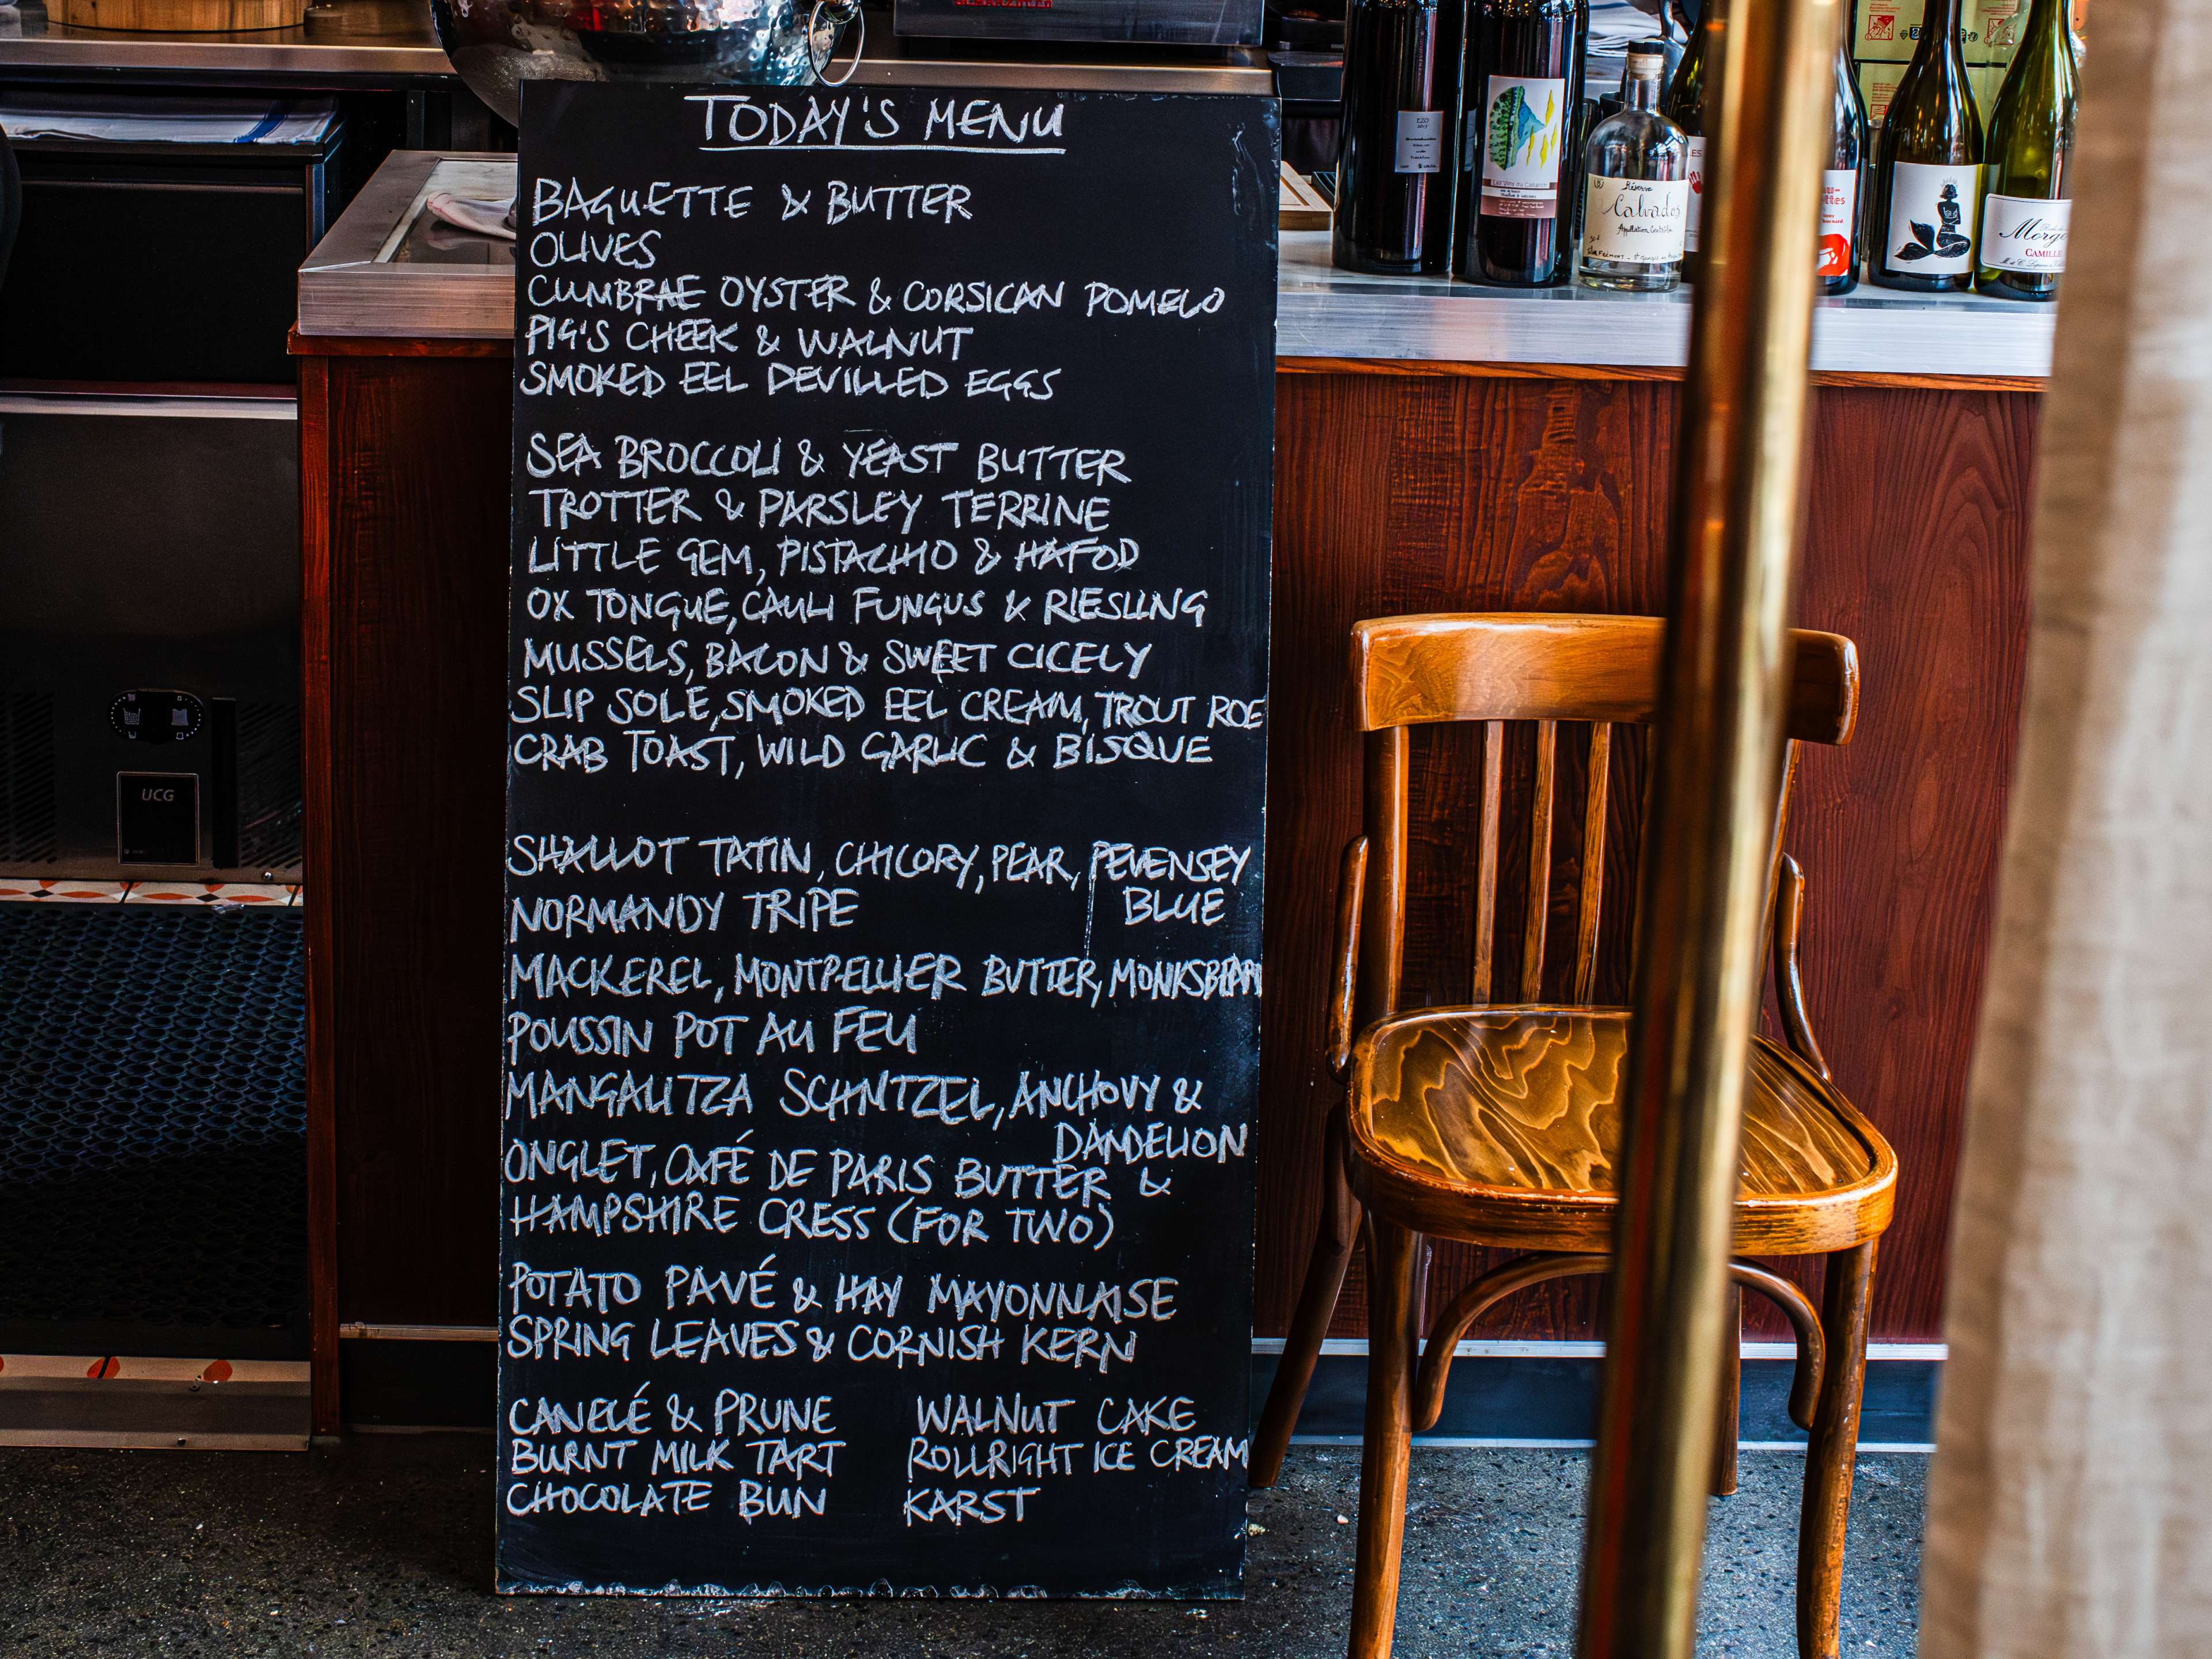 TODAY'S MENU
BAGUETTE & BUTTER
OLIVES
CUMBRAE OYSTER & CORSICAN POMELO
PIG'S CHEEK & WALNUT
SMOKED EEL DEVILLED EGGS
SEA BROCCOLI & YEAST BUTTER
TROTTER & PARSLEY TERRINE
LITTLE GEM, PISTACHIO & HAFOD
OX TONGUE, CAULI FUNGUS & RIESLING
MUSSELS, BACON & SWEET CICELY
SLIP SOLE, SMOKED EEL CREAM, TROUT ROE
CRAB TOAST, WILD GARLIC & BISQUE
SHALLOT TATIN, CHICORY, PEAR, PEVENSEY
BLUE
NORMANDY TRIPE
MACKEREL, MONTPELLIER BUTTER, MONKSBEARD
POUSSIN POT AU FEU
MANGALITZA SCHNTZEL, ANCHOVY &
DANDELION
ONGLET, CAFÉ DE PARIS BUTTER &
HAMPSHIRE CRESS (FOR TWO)
POTATO PAVÉ & HAY MAYONNAISE
SPRING LEAVES & CORNISH KERN
CANELÉ & PRUNE
BURNT MILK TART
CHOCOLATE BUN
WALNUT CAKE
ROLLRIGHT ICE CREAM
KARST
UCG
Réserve
Calvados
Morgo
CAMILLE